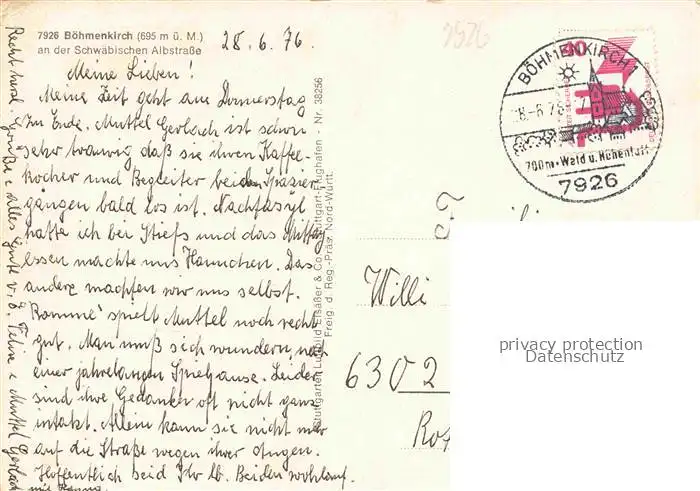 7926 Böhmenkirch (695 m ü. M.)
an der Schwäbischen Albstraße
28.6.76.
Meine Lieben!
Meine Zeit geht am Donnerstag
zu Ende. Muttel Gerlach ist schon
sehr traurig daß sie ihren Kaffee-
kocher und Begleiter bei den Spazier
gängen bald los ist. Nachtasyl
hatte ich bei Stiefs und das Mittag
essen machte uns Hannchen. Das
andere machten wir uns selbst.
Rommé spielt Muttel noch recht
gut. Man muß sich wundern, nach
einer jahrelangen Spielpause. Leider
sind ihre Gedanken oft nicht ganz
intakt. Allein kann sie nicht mehr
auf die Straße wegen ihrer Augen.
Hoffentlich seid Ihr lb. Beiden wohlauf.
Recht herzl. Grüße u. alles Gute v. E. u. Muttel Gerlach
Stuttgarter Luftbild Elsäßer & Co., Stuttgart-Flughafen - Nr. 38256
Freig. d. Reg.-Präs. Nord-Württ.
7926
BÖHMENKIRCH 1
700 m - Wald u. Höhenluft
7926
Willi
6302
privacy protection
Datenschutz